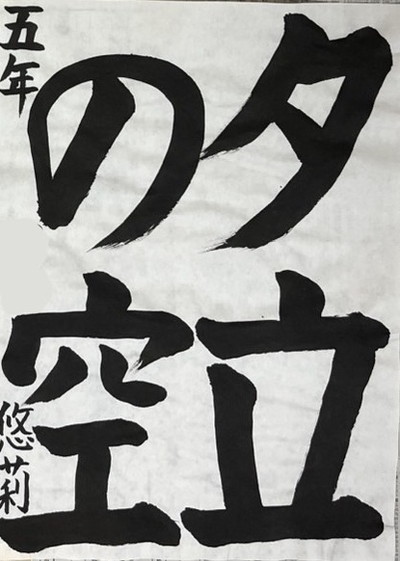 夕立
の空
五年
悠莉